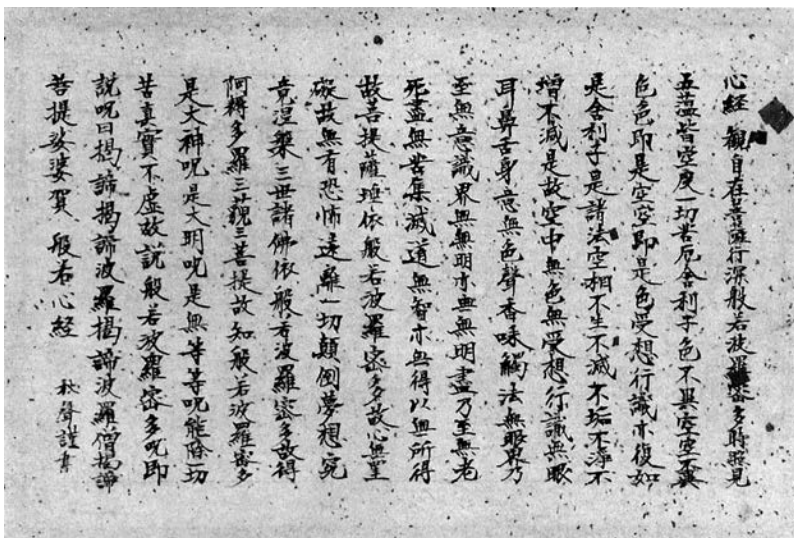 心経 観自在菩薩行深般若波羅密多時照見
五蘊皆空度一切苦厄舍利子色不異空空不異
色色即是空空即是色受想行識亦復如
是舍利子是諸法空相不生不滅不垢不浄不
増不減是故空中無色無受想行識無眼
耳鼻舌身意無色聲香味觸法無眼界乃
至無意識界無無明亦無無明盡乃至無老
死盡無苦集滅道無智亦無得以無所得
故菩提薩埵依般若波羅密多故心無罣
礙故無有恐怖遠離一切顛倒夢想究
竟涅槃三世諸佛依般若波羅密多故得
阿耨多羅三藐三菩提故知般若波羅密多
是大神呪是大明呪是無等等呪能除一切
苦真實不虚故説般若波羅密多呪即
説呪曰揭諦揭諦波羅揭諦波羅僧揭諦
菩提娑婆賀 般若心経 秋聲謹書